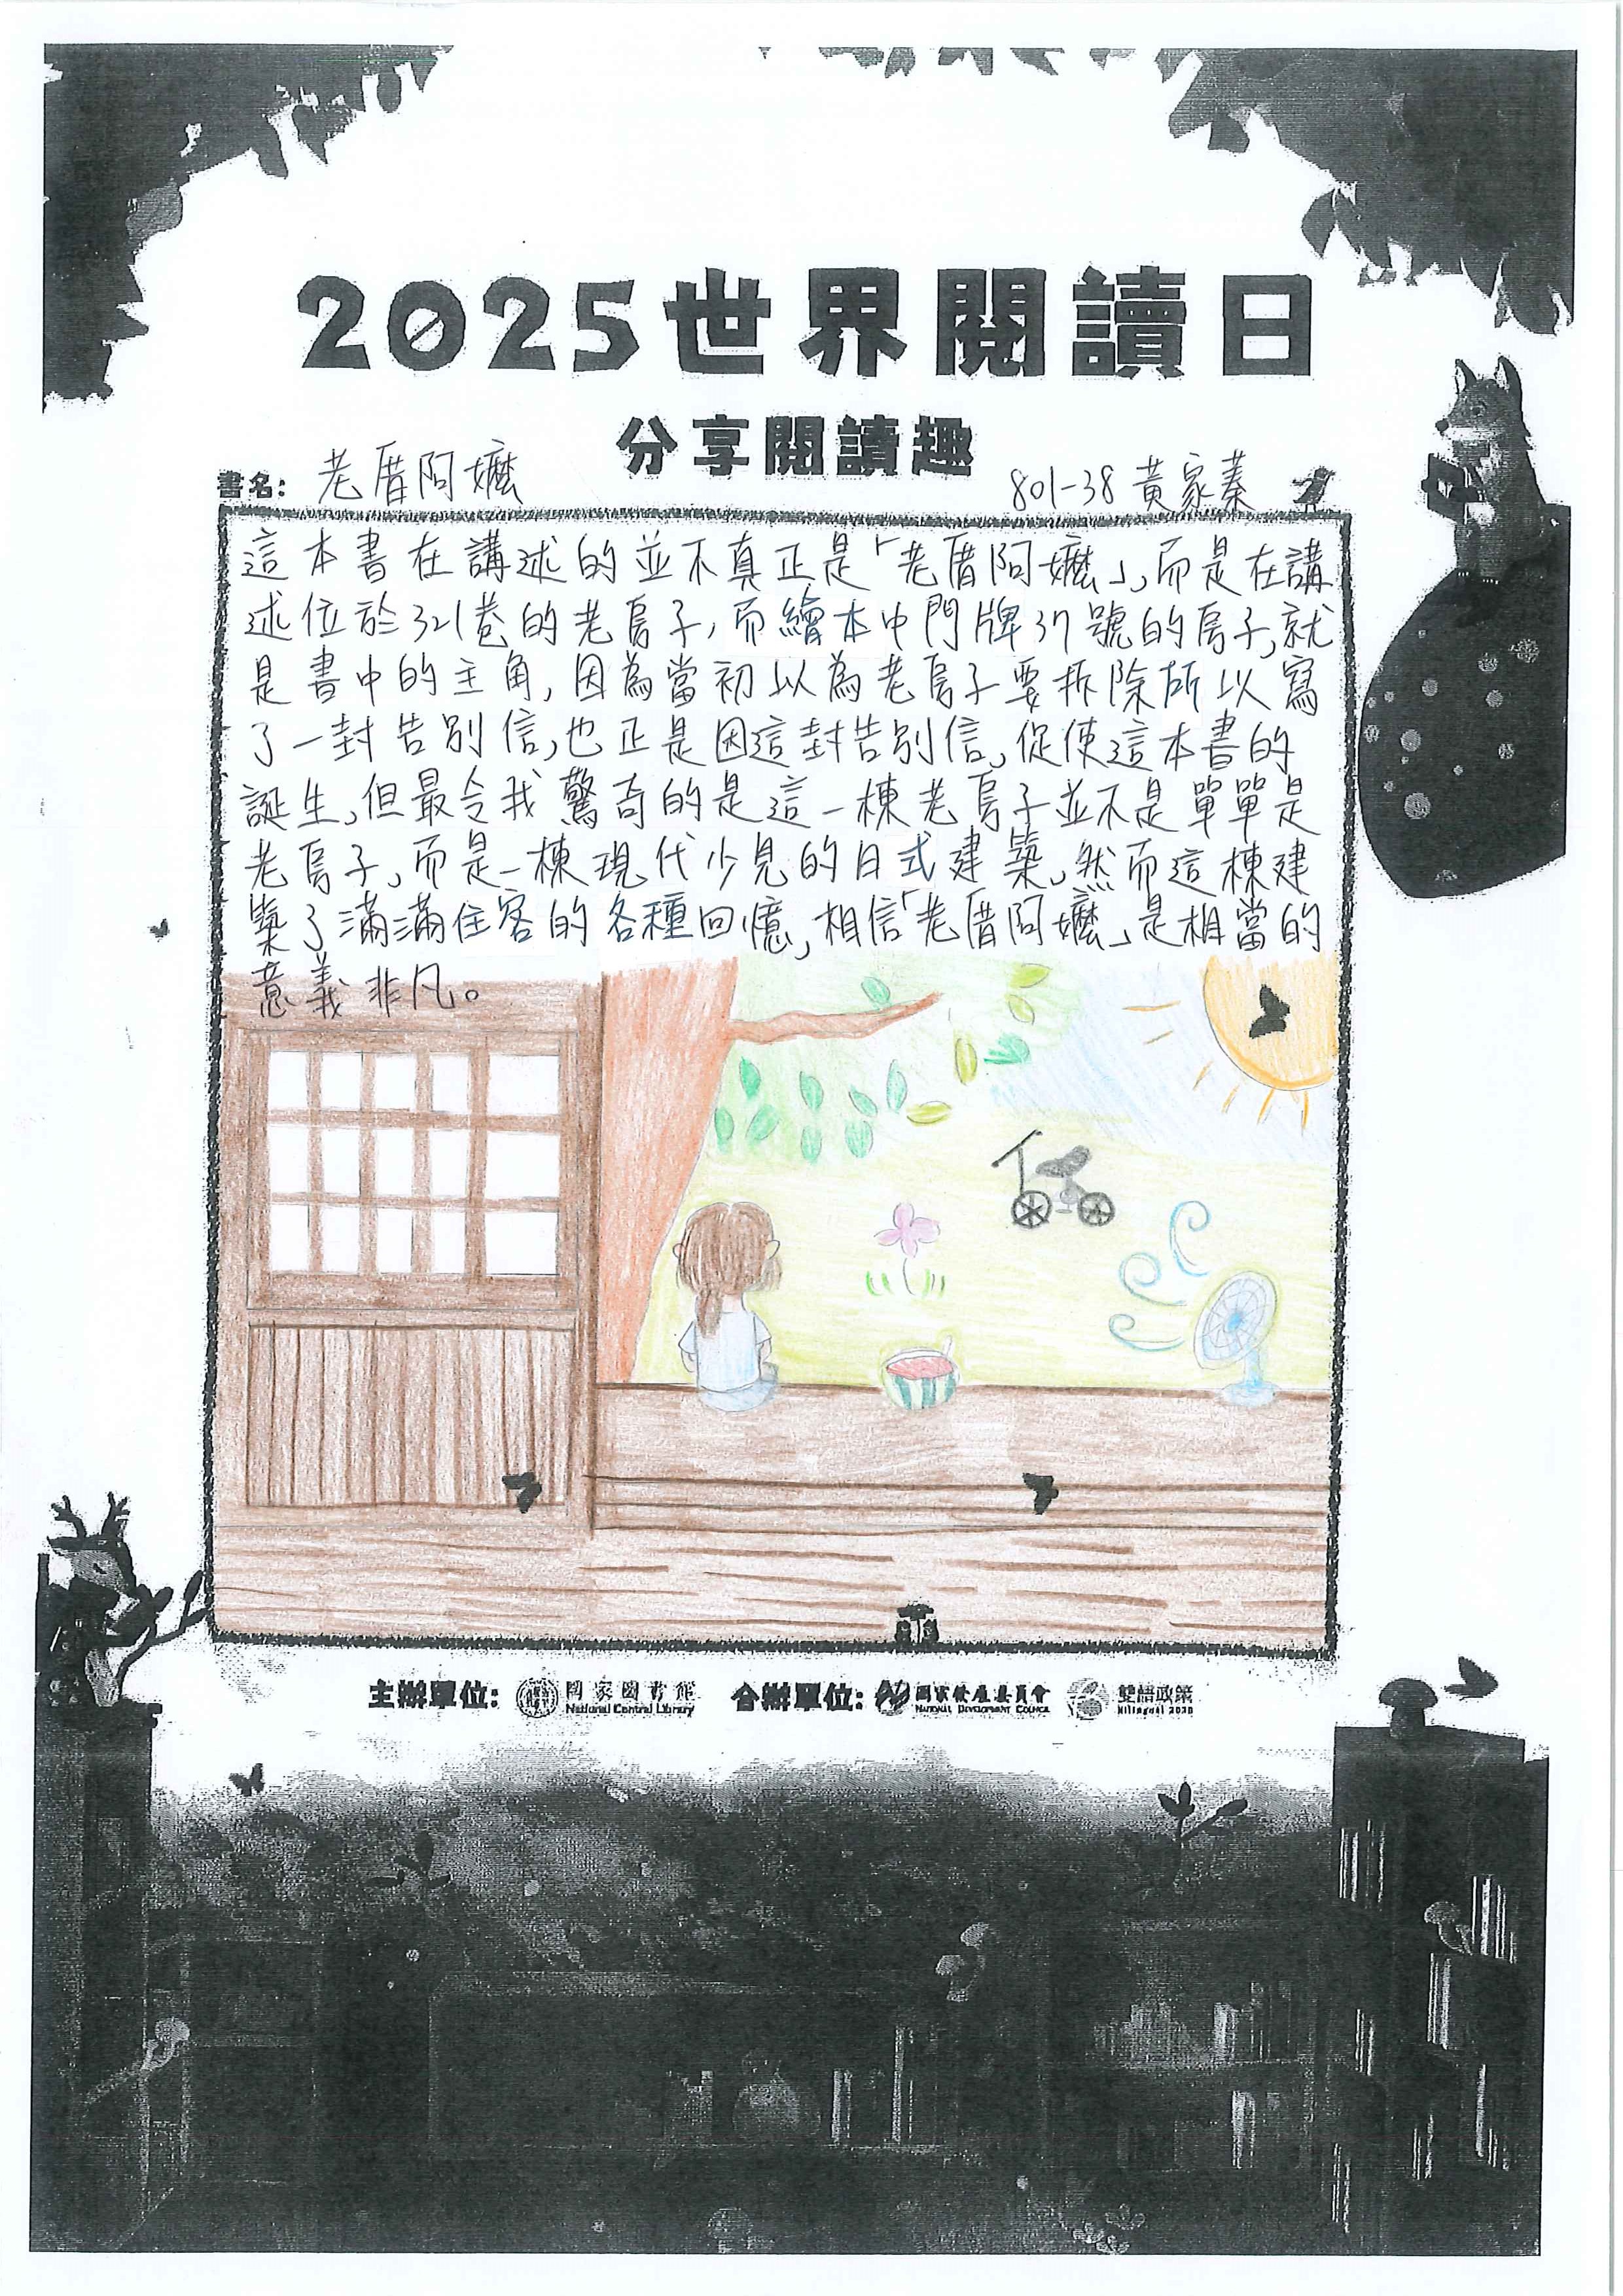 2025世界閱讀日
分享閱讀趣
書名: 老厝阿嬤
801-38 黃家蓁
這本書在講述的並不真正是「老厝阿嬤」,而是在講
述位於321巷的老房子,而繪本中門牌37號的房子,就
是書中的主角,因為當初以為老房子要拆除所以寫
了一封告別信,也正是因這封告別信,促使這本書的
誕生,但最令我驚奇的是這一棟老房子並不是單單是
老房子,而是一棟現代少見的日式建築,然而這棟建
築了滿滿住客的各種回憶,相信「老厝阿嬤」是相當的
意義非凡。
主辦單位: 國家圖書館 National Central Library 合辦單位: 國家發展委員會 National Development Council 雙語政策 Bilingual 2030